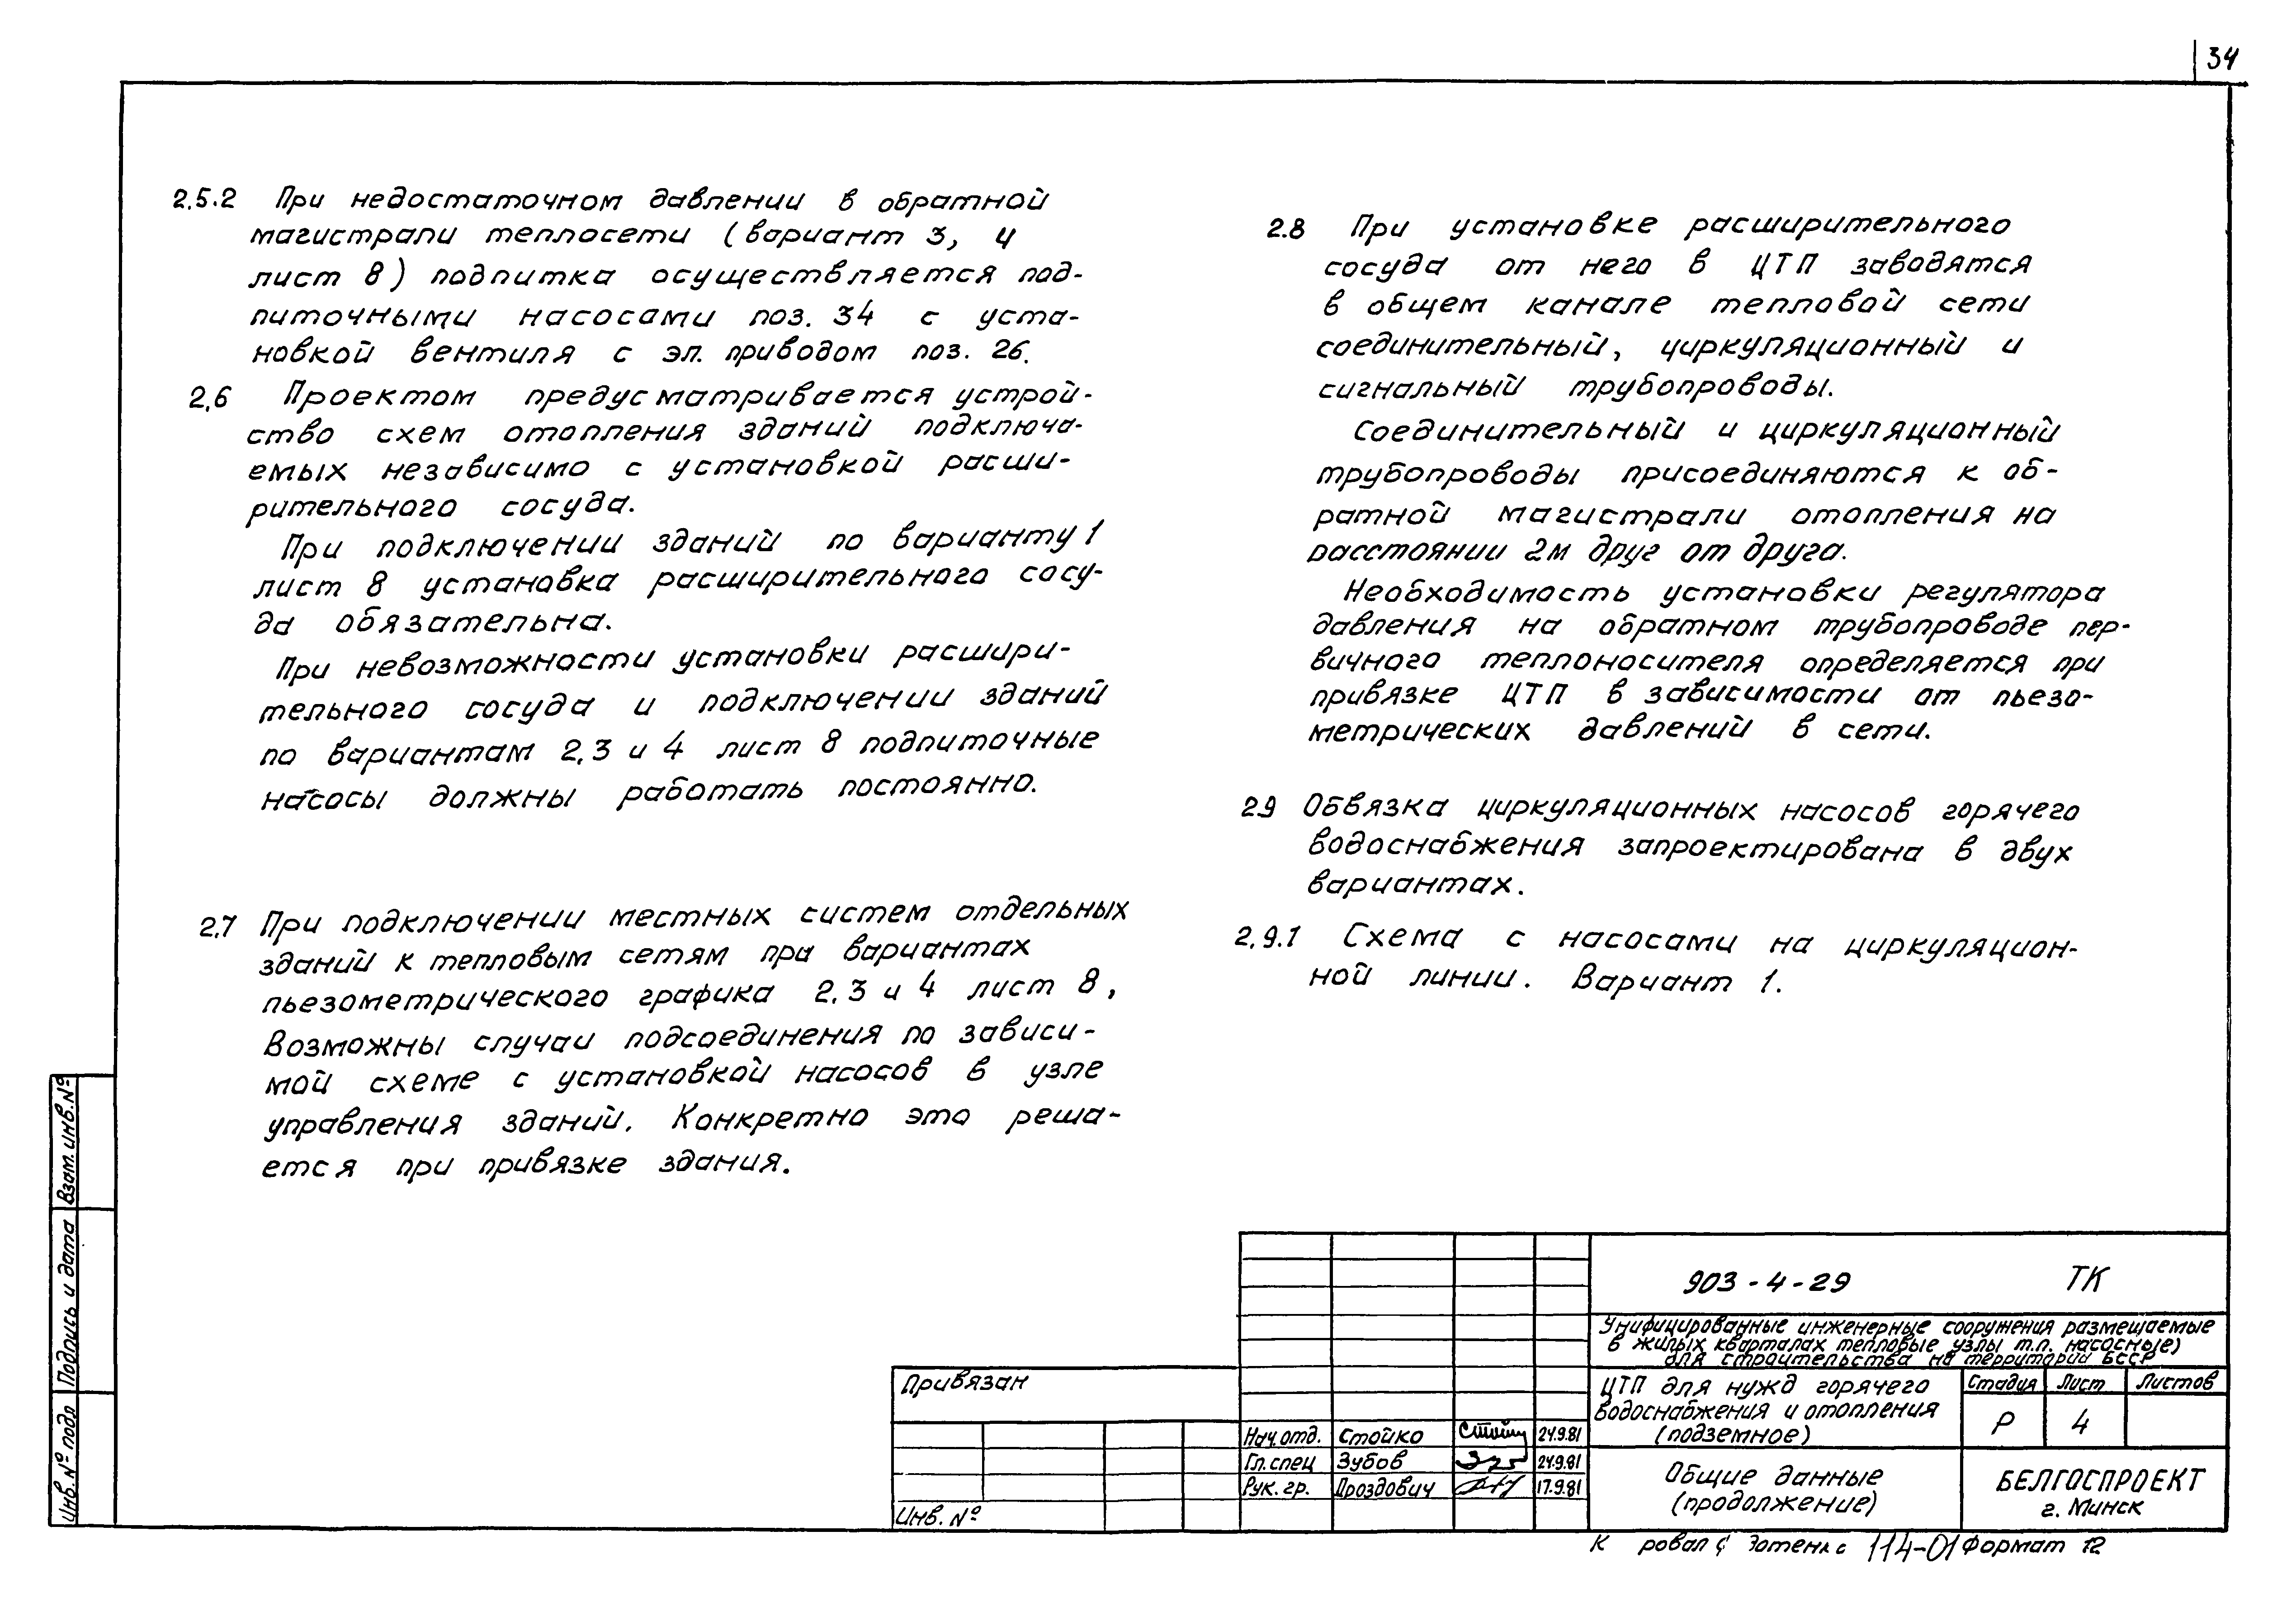 34
2.5.2 При недостаточном давлении в обратной
магистрали теплосети (вариант 3, 4
лист 8) подпитка осуществляется под-
питочными насосами поз. 34 с уста-
новкой вентиля с эл. приводом поз. 26.
2.6 Проектом предусматривается устрой-
ство схем отопления зданий подключа-
емых независимо с установкой расши-
рительного сосуда.
При подключении зданий по варианту 1
лист 8 установка расширительного сосу-
да обязательна.
При невозможности установки расшири-
тельного сосуда и подключении зданий
по вариантам 2,3 и 4 лист 8 подпиточные
насосы должны работать постоянно.
2.7 При подключении местных систем отдельных
зданий к тепловым сетям при вариантах
пьезометрического графика 2,3 и 4 лист 8,
Возможны случаи подсоединения по зависи-
мой схеме с установкой насосов в узле
управления зданий. Конкретно это реша-
ется при привязке здания.
2.8 При установке расширительного
сосуда от него в ЦТП заводятся
в общем канале тепловой сети
соединительный, циркуляционный и
сигнальный трубопроводы.
Соединительный и циркуляционный
трубопроводы присоединяются к об-
ратной магистрали отопления на
расстоянии 2м друг от друга.
Необходимость установки регулятора
давления на обратном трубопроводе пер-
вичного теплоносителя определяется при
привязке ЦТП в зависимости от пьезо-
метрических давлений в сети.
2.9 Обвязка циркуляционных насосов горячего
водоснабжения запроектирована в двух
вариантах.
2.9.1 Схема с насосами на циркуляцион-
ной линии. Вариант 1.
Взам. инв. №
Подпись и дата
Инв. № подл
Привязан
Инв. №
Нач. отд. Стойко 24.9.81
Гл. спец Зубов 24.9.81
Рук. гр. Дроздович 17.9.81
903-4-29 ТК
Унифицированные инженерные сооружения размещаемые
в жилых кварталах тепловые узлы т.п. насосные)
для строительства на территории БССР
ЦТП для нужд горячего
водоснабжения и отопления
(подземное)
Стадия Лист Листов
Р 4
Общие данные
(продолжение)
БЕЛГОСПРОЕКТ
г. Минск
114-01 Формат 12